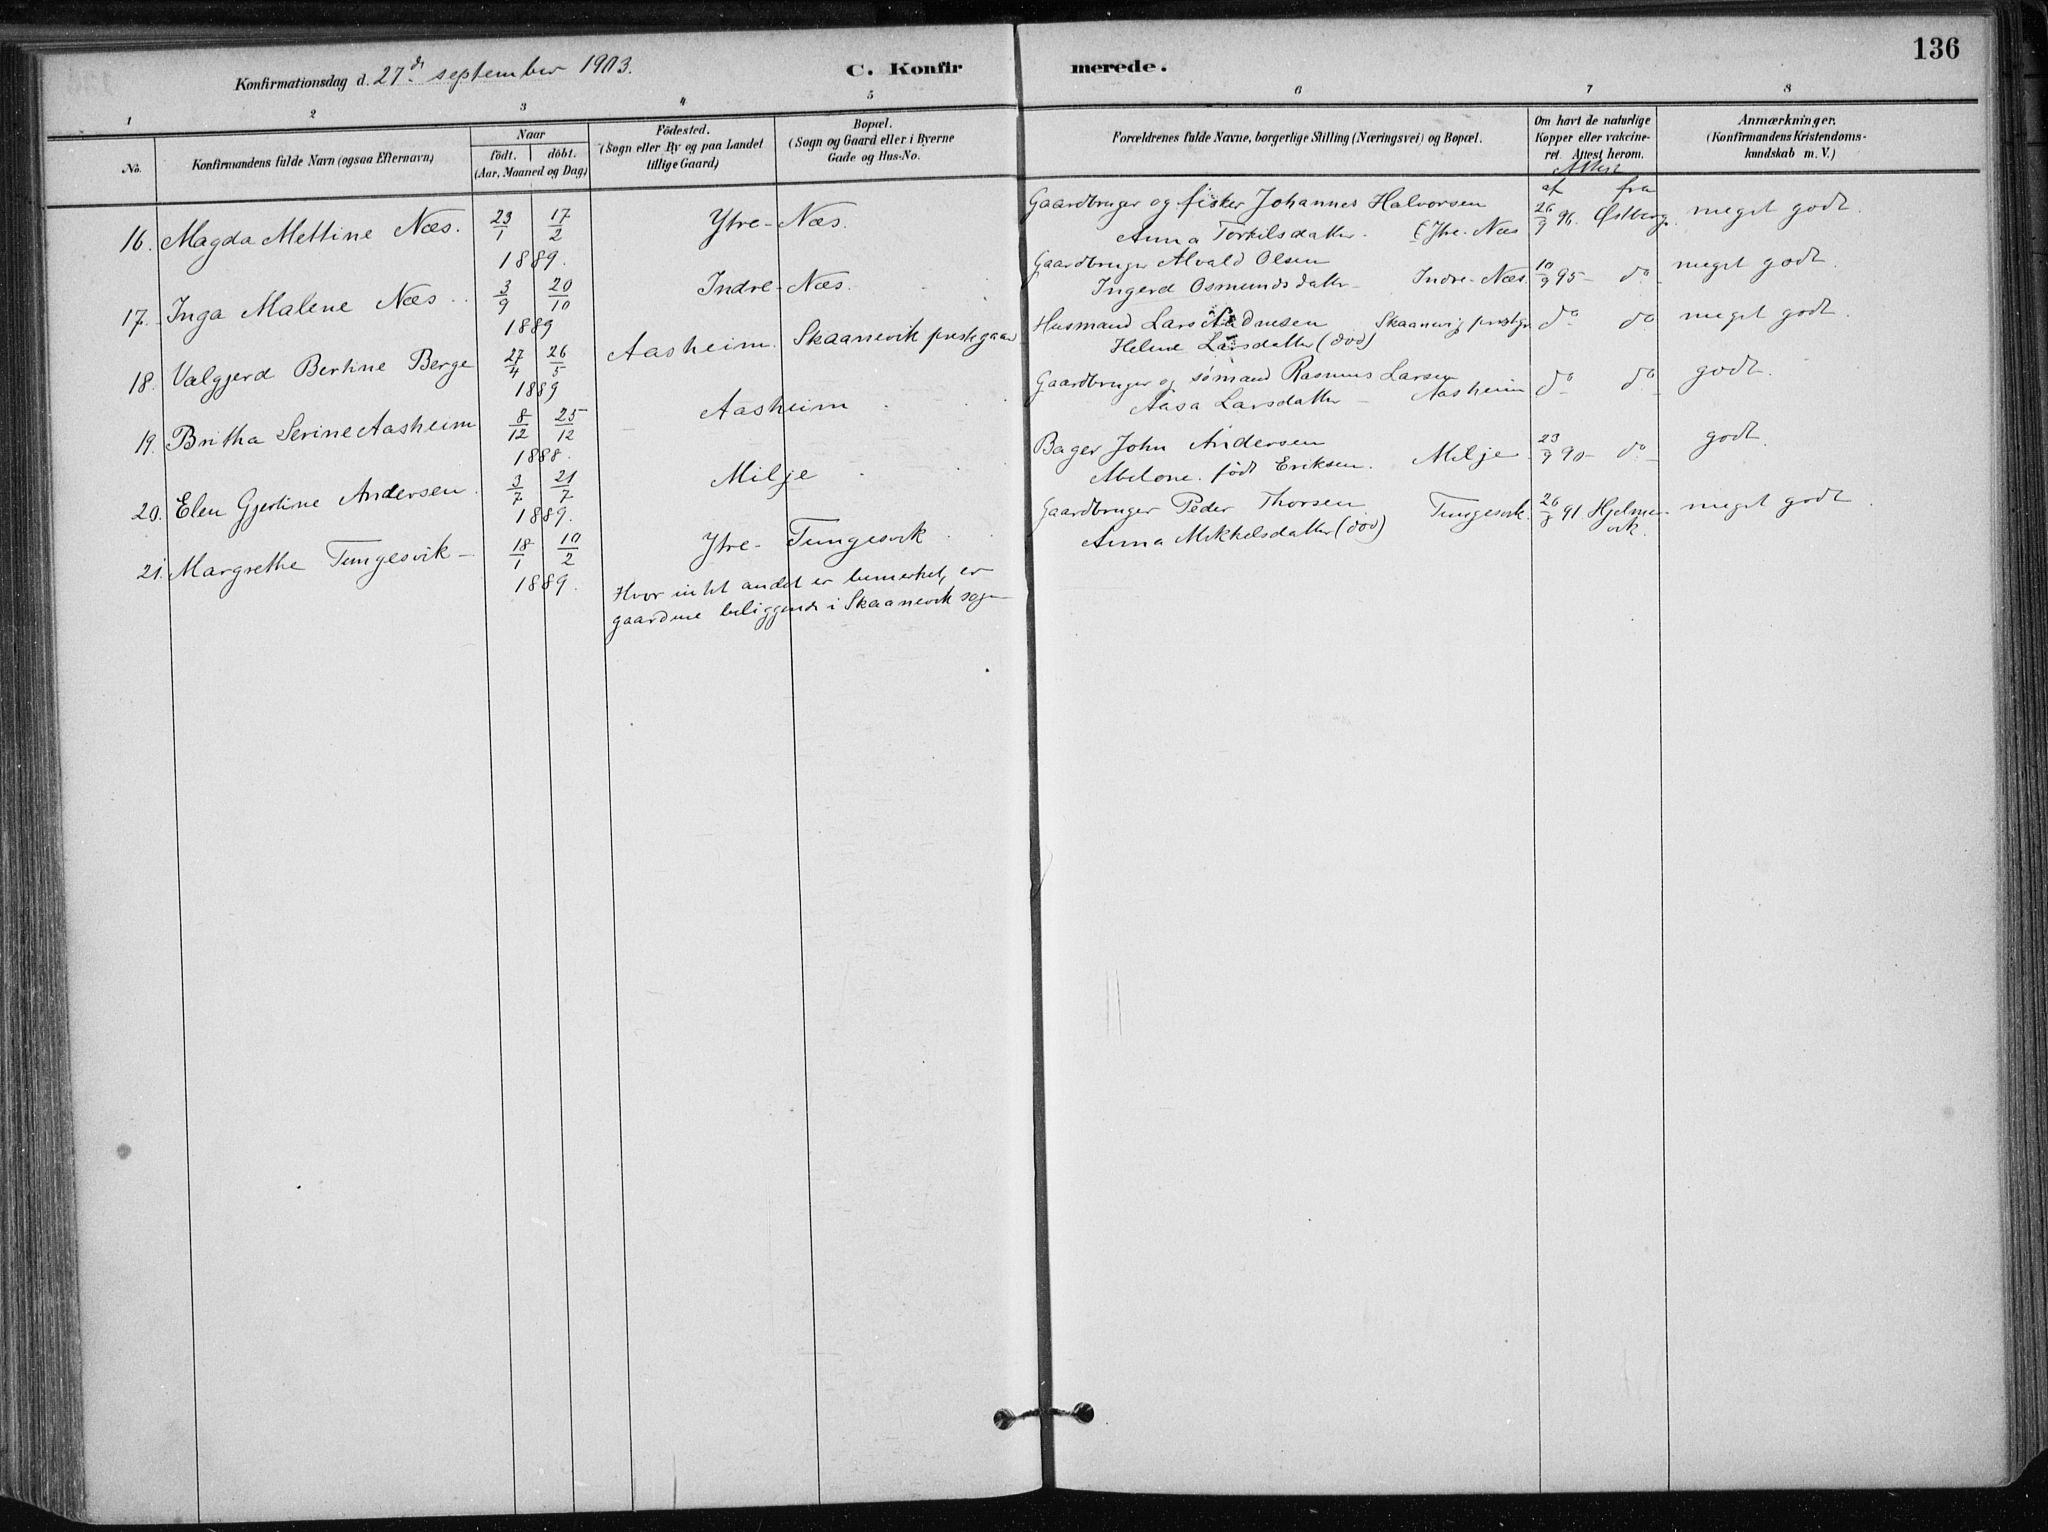 136
Konfirmationsdag d. 27de september 1903.
C. Konfirmerede.
1 2 3 4 5 6 7 8
No.
Konfirmandens fulde Navn (ogsaa Efternavn)
Naar
födt. döbt.
(Aar, Maaned og Dag)
Födested.
(Sogn eller By og paa Landet
tillige Gaard)
Bopæl.
(Sogn og Gaard eller i Byerne
Gade og Hus-No.
Forældrenes fulde Navne, borgerlige Stilling (Næringsvei) og Bopæl.
Om havt de naturlige
Kopper eller vakcine-
ret. Attest herom.
Anmærkninger.
(Konfirmandens Kristendoms-
kundskab m. V.)
Attest
af fra
16. Magda Mettine Næs. 23/1 17/2 Ytre-Næs. Gaardbruger og fisker Johannes Halvorsen 26/9 96. Østberg. meget godt.
1889. Anna Torkelsdatter. Ytre-Næs
17. Inga Malene Næs. 3/9 20/10 Indre-Næs. Gaardbruger Alvald Olsen 10/9 95- do meget godt.
1889 Ingerd Osmundsdatter- Indre-Næs.
18. Valgjerd Bertine Berge 27/4 26/5 Aasheim. Skaanevik prestegaar Husmand Lars Skaanevig prestgr do do meget godt.
1889 Helene Larsdatter (död)
19. Britha Serine Aasheim 8/12 25/12 Aasheim Gaardbruger og sømand Rasmus Larsen do do godt.
1888. Aasa Larsdatter - Aasheim
20. Elen Gjertine Andersen. 3/7 21/7 Milje Bager John Andersen Milje. 23/9 90- do godt.
1889. Abelone. født Eriksen.
21. Margrethe Tungesvik- 18/1 10/2 Ytre-Tungesvik. Gaardbruger Peder Thorsen Tungesvik. 26/8 91 Hjelme-
vik. meget godt
1889. Anna Mikkelsdatter (död)
Hvor intet andet er bemerket, er
gaardene beliggende i Skaanevik sogn